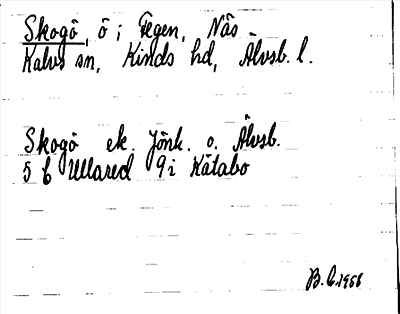 Skogö, ö i Fegen, Näs
Kalvs sn, Kinds hd, Älvsb. l.
Skogö ek. Jönk. o. Älvsb.
5 b Ullared 9 i Kätabo
B. C. 1966